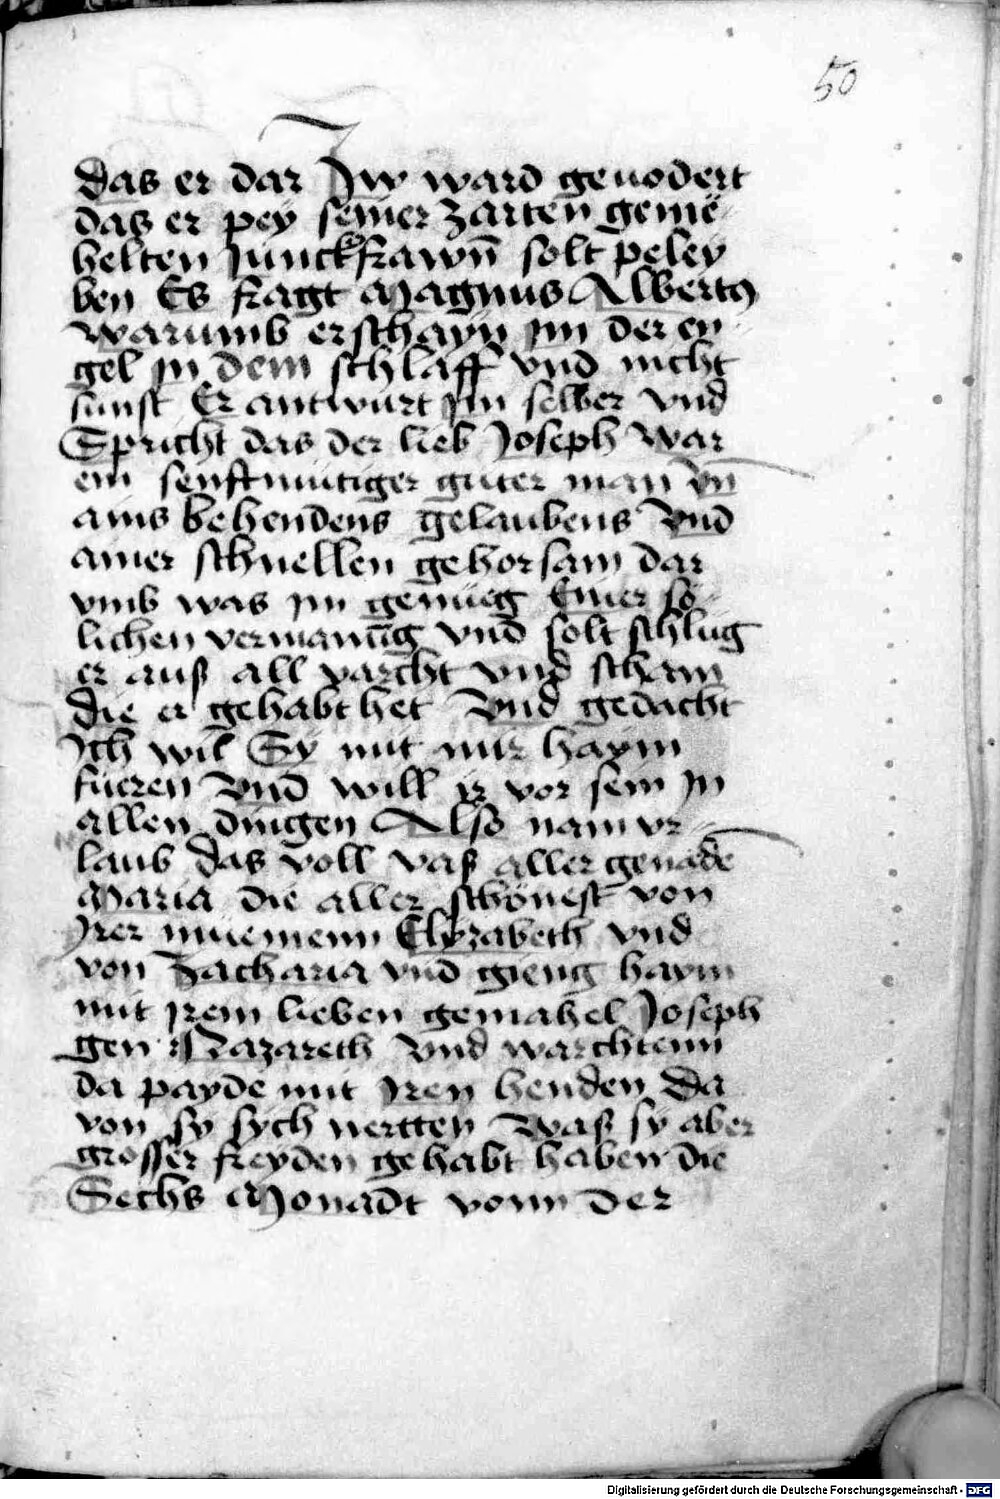 50
das er dar Zw ward genodert
das er pey seiner zarten geme¨
helten Junckfrawn̄ solt peley
ben Es fragt Magnus Albertꝯ
warumb erschayn im der en¨
gel in dem schlaff vnd nicht
sunst Er antwurt im selber vnd
Spricht das der lieb Joseph war
ein senftmütiger guter man vn̄
ains behendens gelaubens Vnd
ainer schnellen gehorsam dar
vmb was im genueg Einer so¨
lichen vermanūg vnd solt schlug
er auß all varcht vnd scham
die er gehabt het Vnd gedacht
Ich wil Sy mit mir haym
fueren Vnd will ir vor sein in
allen dingen Also nam vr¨
laub das voll vaß aller genade
Maria die aller schönest von
Irer muemenn Elyzabeth vnd
von Zacharia vnd gieng haym
mit irem lieben gemahel Joseph
gen Nazareth Vnd warchtenn
da payde mit Iren henden Da
von sy sych nertten Waß sy aber
grosser freyden gehabt haben die
Sechs Monadt vonn der
Digitalisierung gefördert durch die Deutsche Forschungsgemeinschaft - DFG